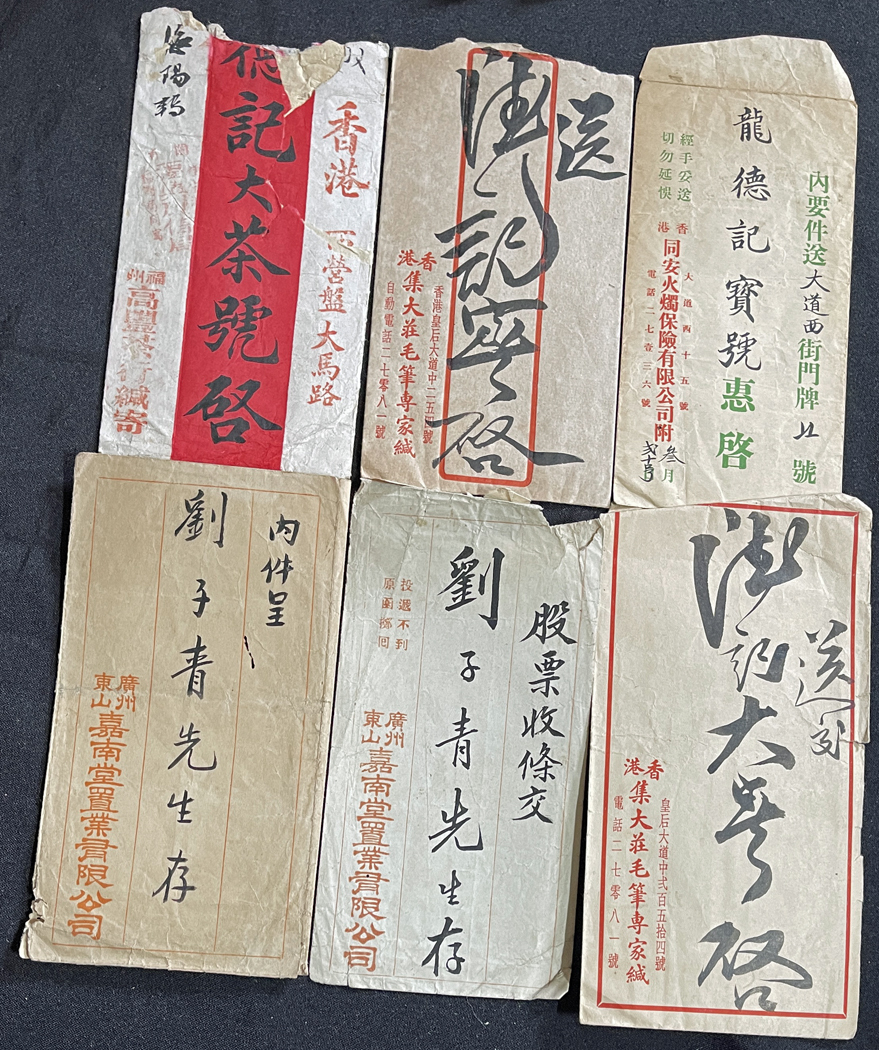 香港 西營盤大馬路
德記大茶號啓
福州
高豐茶行緘寄
送
德記寶號啓
香港
香港皇后大道中二五四號
集大莊毛筆專家緘
自動電話二七零八一號
內要件送大道西街門牌 號
龍德記寶號惠啓
經手妥送
切勿延悞
香港
大道西十五號
同安火燭保險有限公司附
電話二七壹三六號
叁月
內件呈
劉子青先生存
廣州
東山
嘉南堂置業有限公司
股票收條交
劉子青先生存
投遞不到
原函擲回
廣州
東山
嘉南堂置業有限公司
送
德記大號啓
香港
皇后大道中弍百五拾四號
集大莊毛筆專家緘
電話二七零八一號